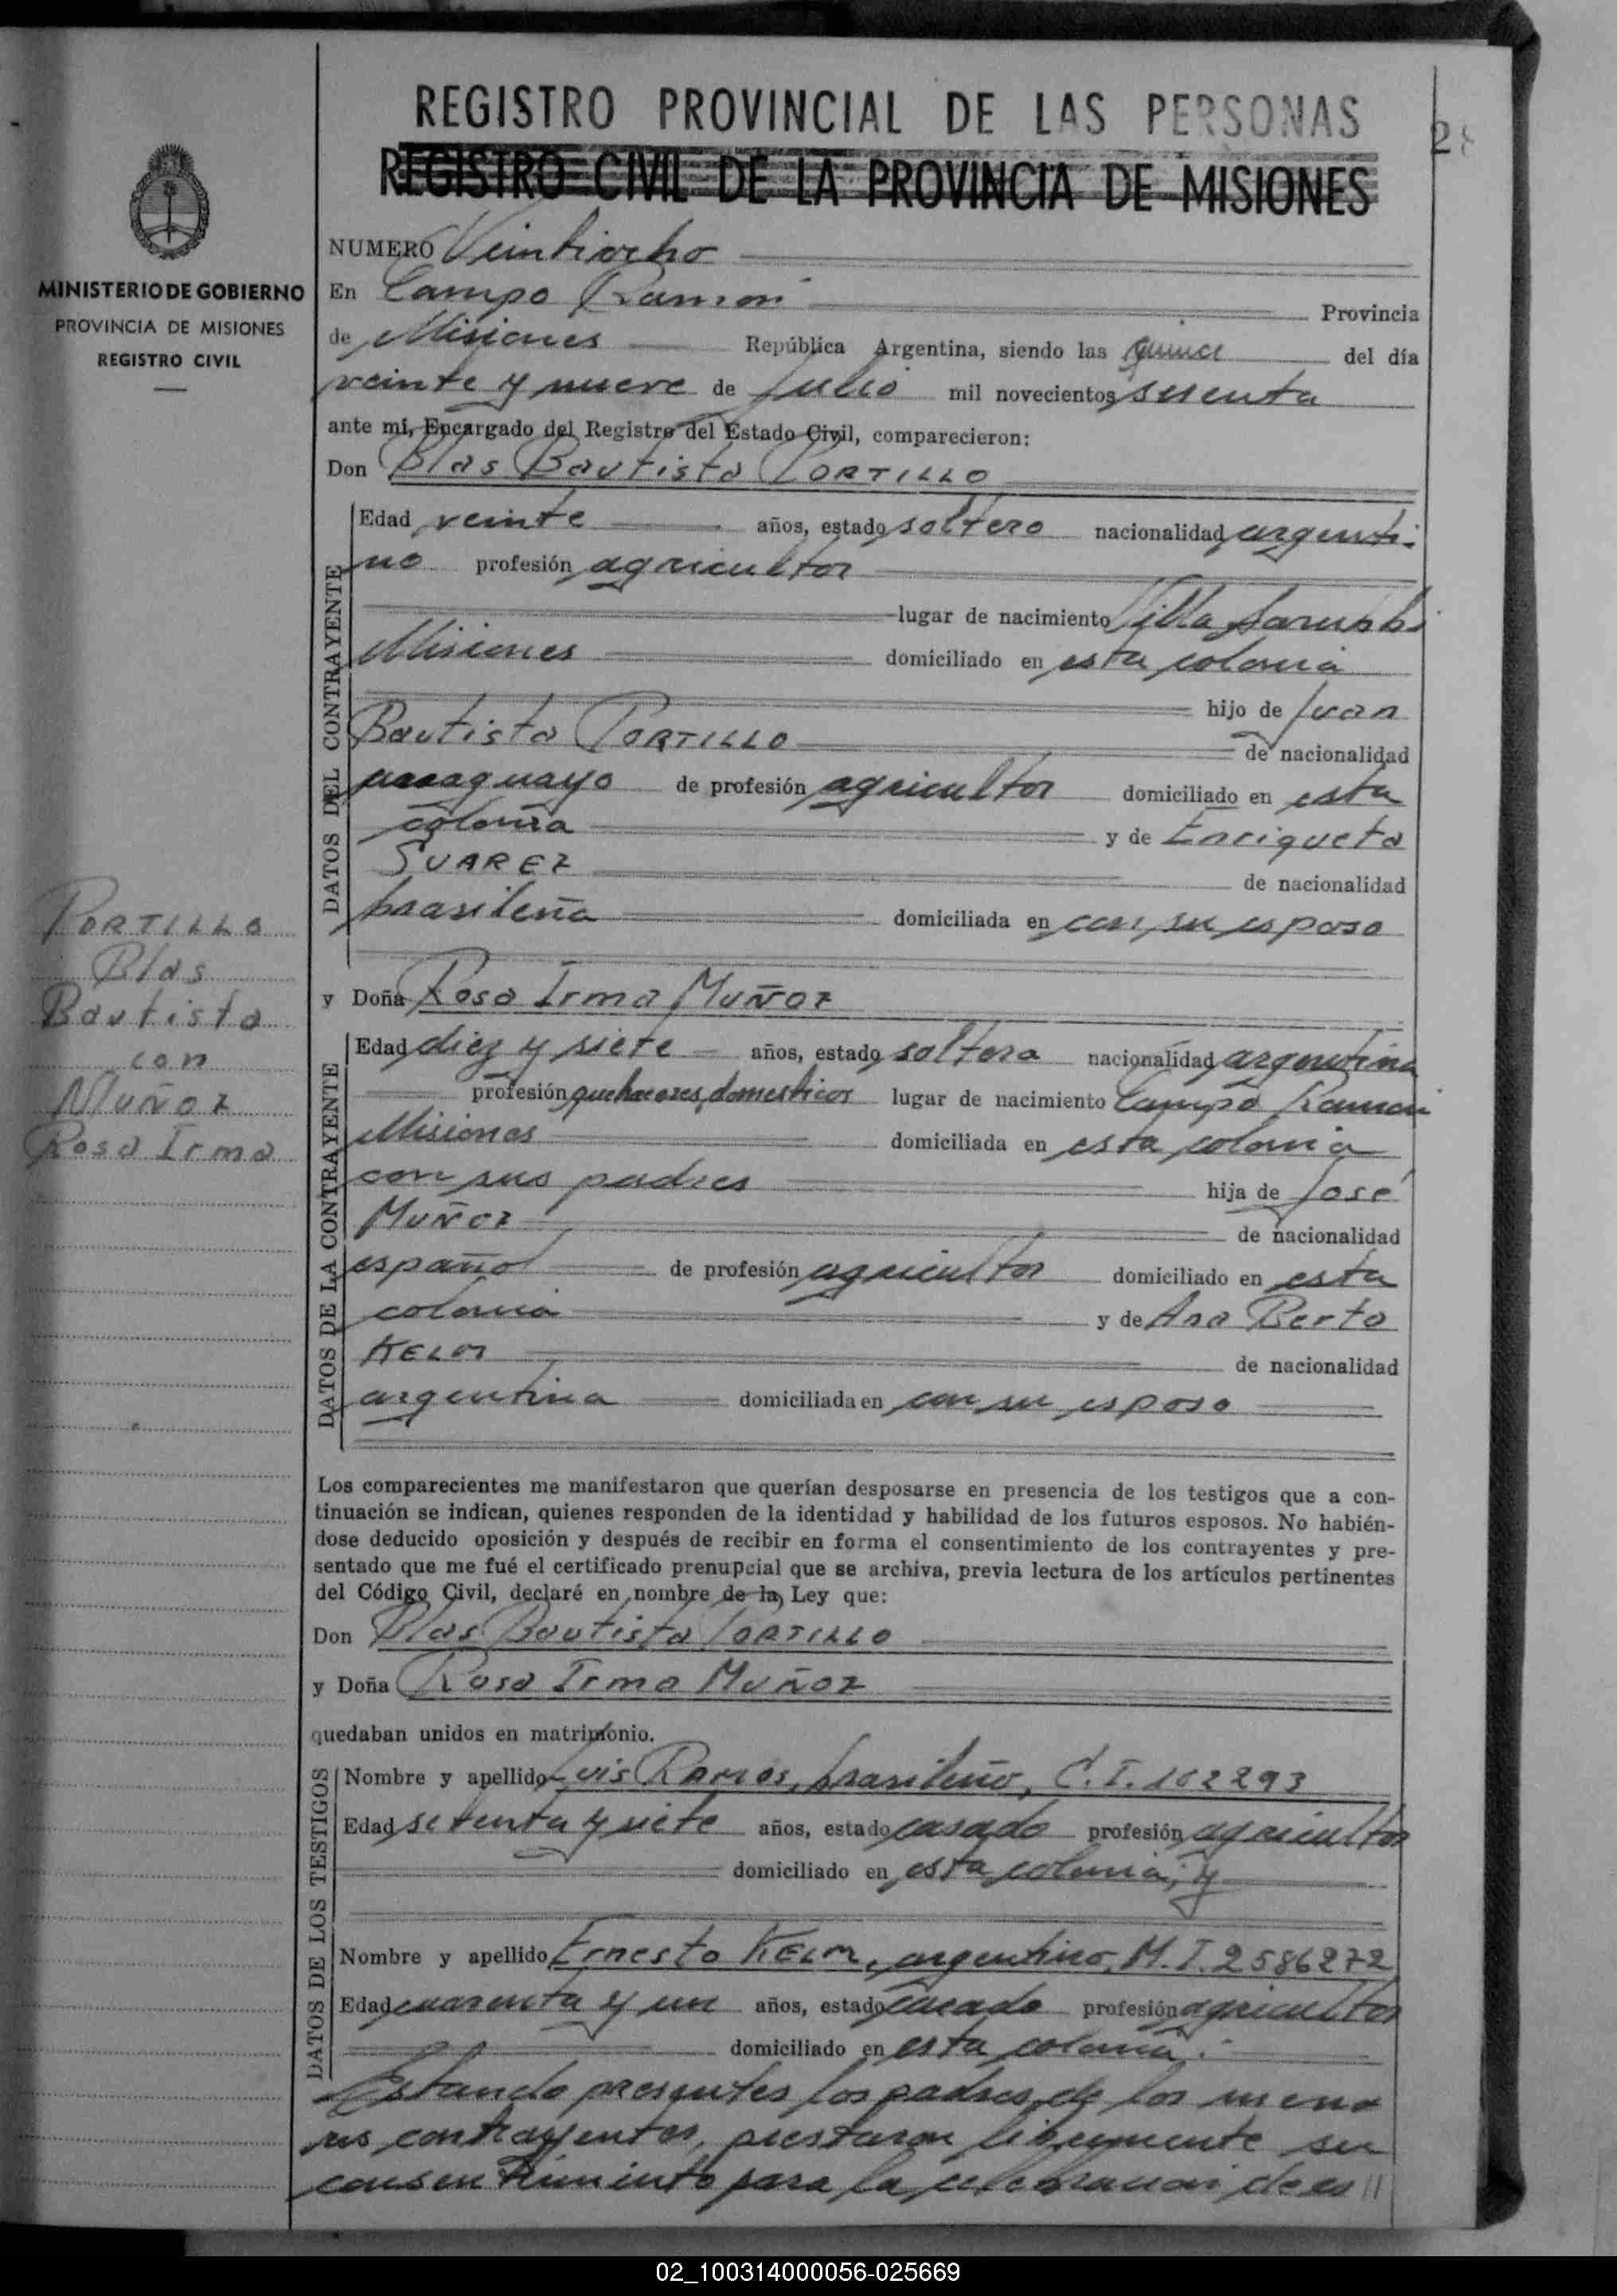 REGISTRO PROVINCIAL DE LAS PERSONAS
28
REGISTRO CIVIL DE LA PROVINCIA DE MISIONES
MINISTERIO DE GOBIERNO
PROVINCIA DE MISIONES
REGISTRO CIVIL
NUMERO Veintiocho
En Campo Ramon Provincia
de Misiones República Argentina, siendo las quince del día
veinte y nueve de julio mil novecientos sesenta
ante mí, Encargado del Registro del Estado Civil, comparecieron:
Don Blas Bautista PORTILLO
DATOS DEL CONTRAYENTE
Edad veinte años, estado soltero nacionalidad argenti-
no profesión agricultor
lugar de nacimiento Villa Sarubbi
Misiones domiciliado en esta colonia
hijo de Juan
Bautista PORTILLO de nacionalidad
de profesión agricultor domiciliado en esta
colonia y de Enriqueta
SUAREZ de nacionalidad
brasileña domiciliada en con su esposo
PORTILLO
Blas
Bautista
con
MUÑOZ
Rosa Irma
y Doña Rosa Irma MUÑOZ
DATOS DE LA CONTRAYENTE
Edad diez y siete años, estado soltera nacionalidad argentina
profesión quehaceres domesticos lugar de nacimiento Campo Ramon
Misiones domiciliada en esta colonia
con sus padres hija de José
MUÑOZ de nacionalidad
español de profesión agricultor domiciliado en esta
colonia y de Ana Berta
KELM de nacionalidad
argentina domiciliada en con su esposo
Los comparecientes me manifestaron que querían desposarse en presencia de los testigos que a con-
tinuación se indican, quienes responden de la identidad y habilidad de los futuros esposos. No habién-
dose deducido oposición y después de recibir en forma el consentimiento de los contrayentes y pre-
sentado que me fué el certificado prenupcial que se archiva, previa lectura de los artículos pertinentes
del Código Civil, declaré en nombre de la Ley que:
Don Blas Bautista PORTILLO
y Doña Rosa Irma MUÑOZ
quedaban unidos en matrimonio.
DATOS DE LOS TESTIGOS
Nombre y apellido Luis RAMOS, brasileño, C.I. 102293
Edad setenta y siete años, estado casado profesión agricultor
domiciliado en esta colonia; y
Nombre y apellido Ernesto KELM, argentino, M.I. 2586272
Edad cuarenta y un años, estado casado profesión agricultor
domiciliado en esta colonia.
Estando presentes los padres de los meno
res contrayentes, prestaron libremente su
consentimiento para la celebracion de es //
02_100314000056-025669